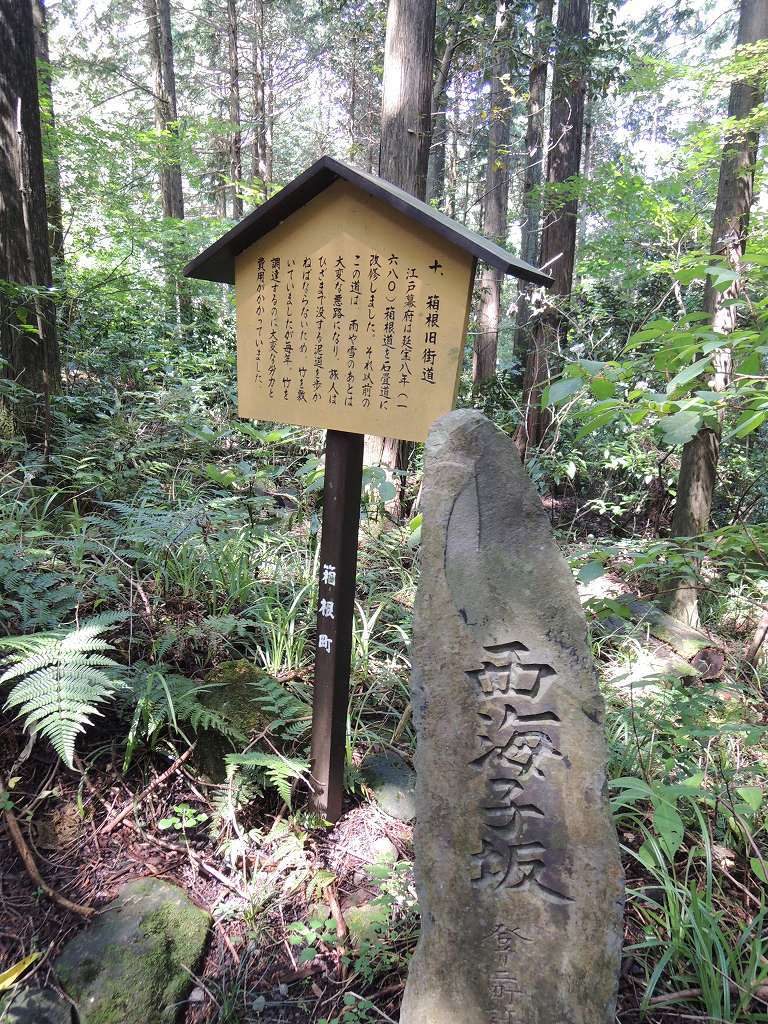 十、箱根旧街道
江戸幕府は延宝八年（一
六八〇）箱根道を石畳道に
改修しました。それ以前の
この道は 雨や雪のあとは
大変な悪路になり、旅人は
ひざまで没する泥道を歩か
ねばならないため、竹を敷
いていましたが毎年、竹を
調達するのに大変な労力と
費用がかかっていました。
箱根町
西海子坂